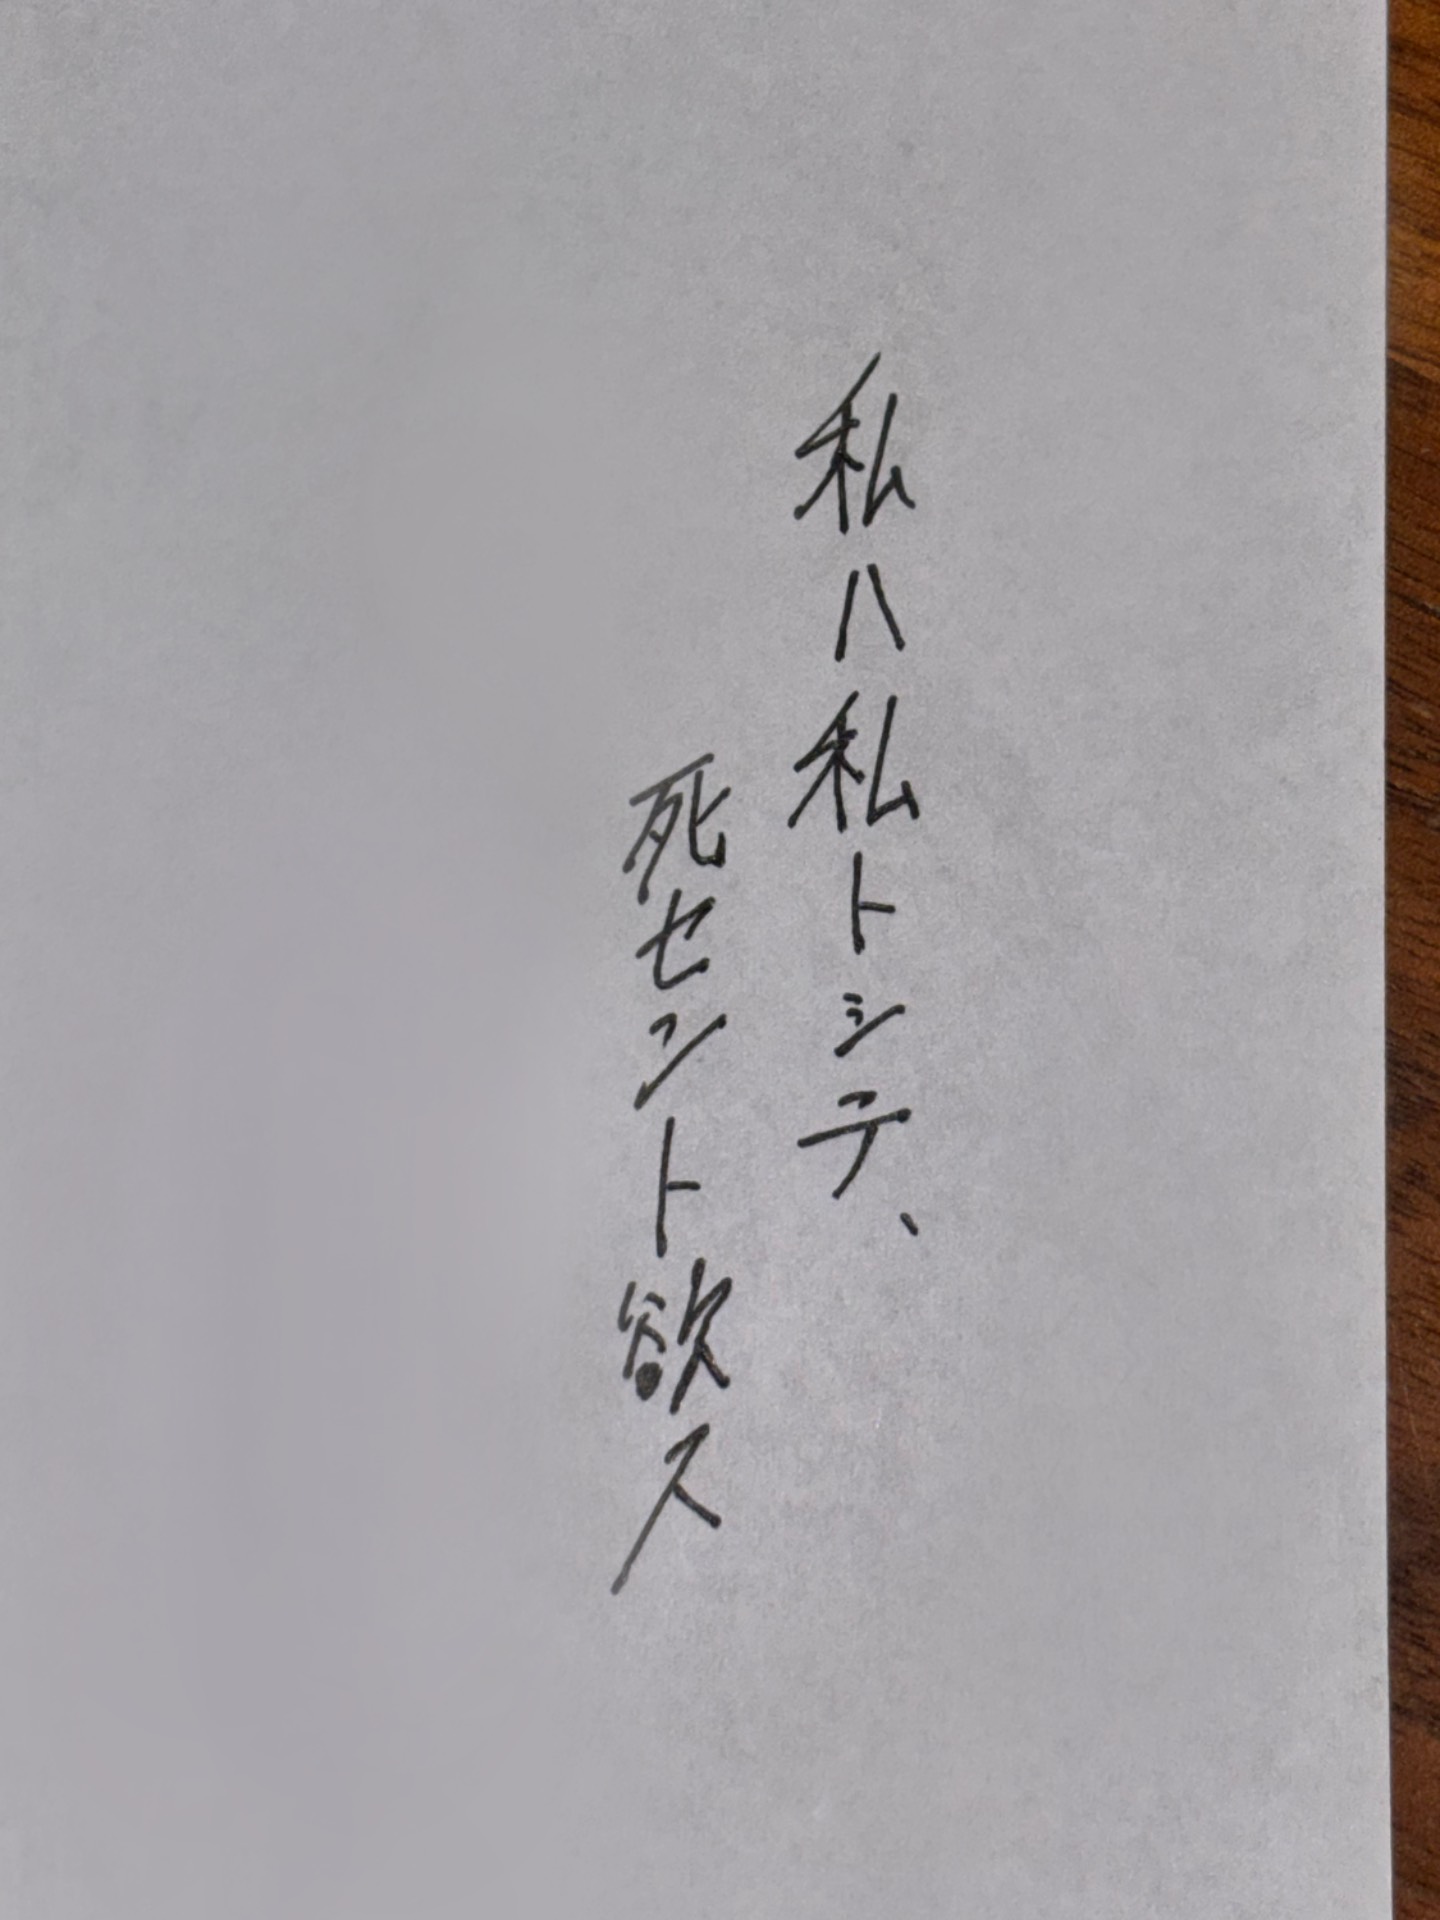 私ハ私トシテ、
死セント欲ス